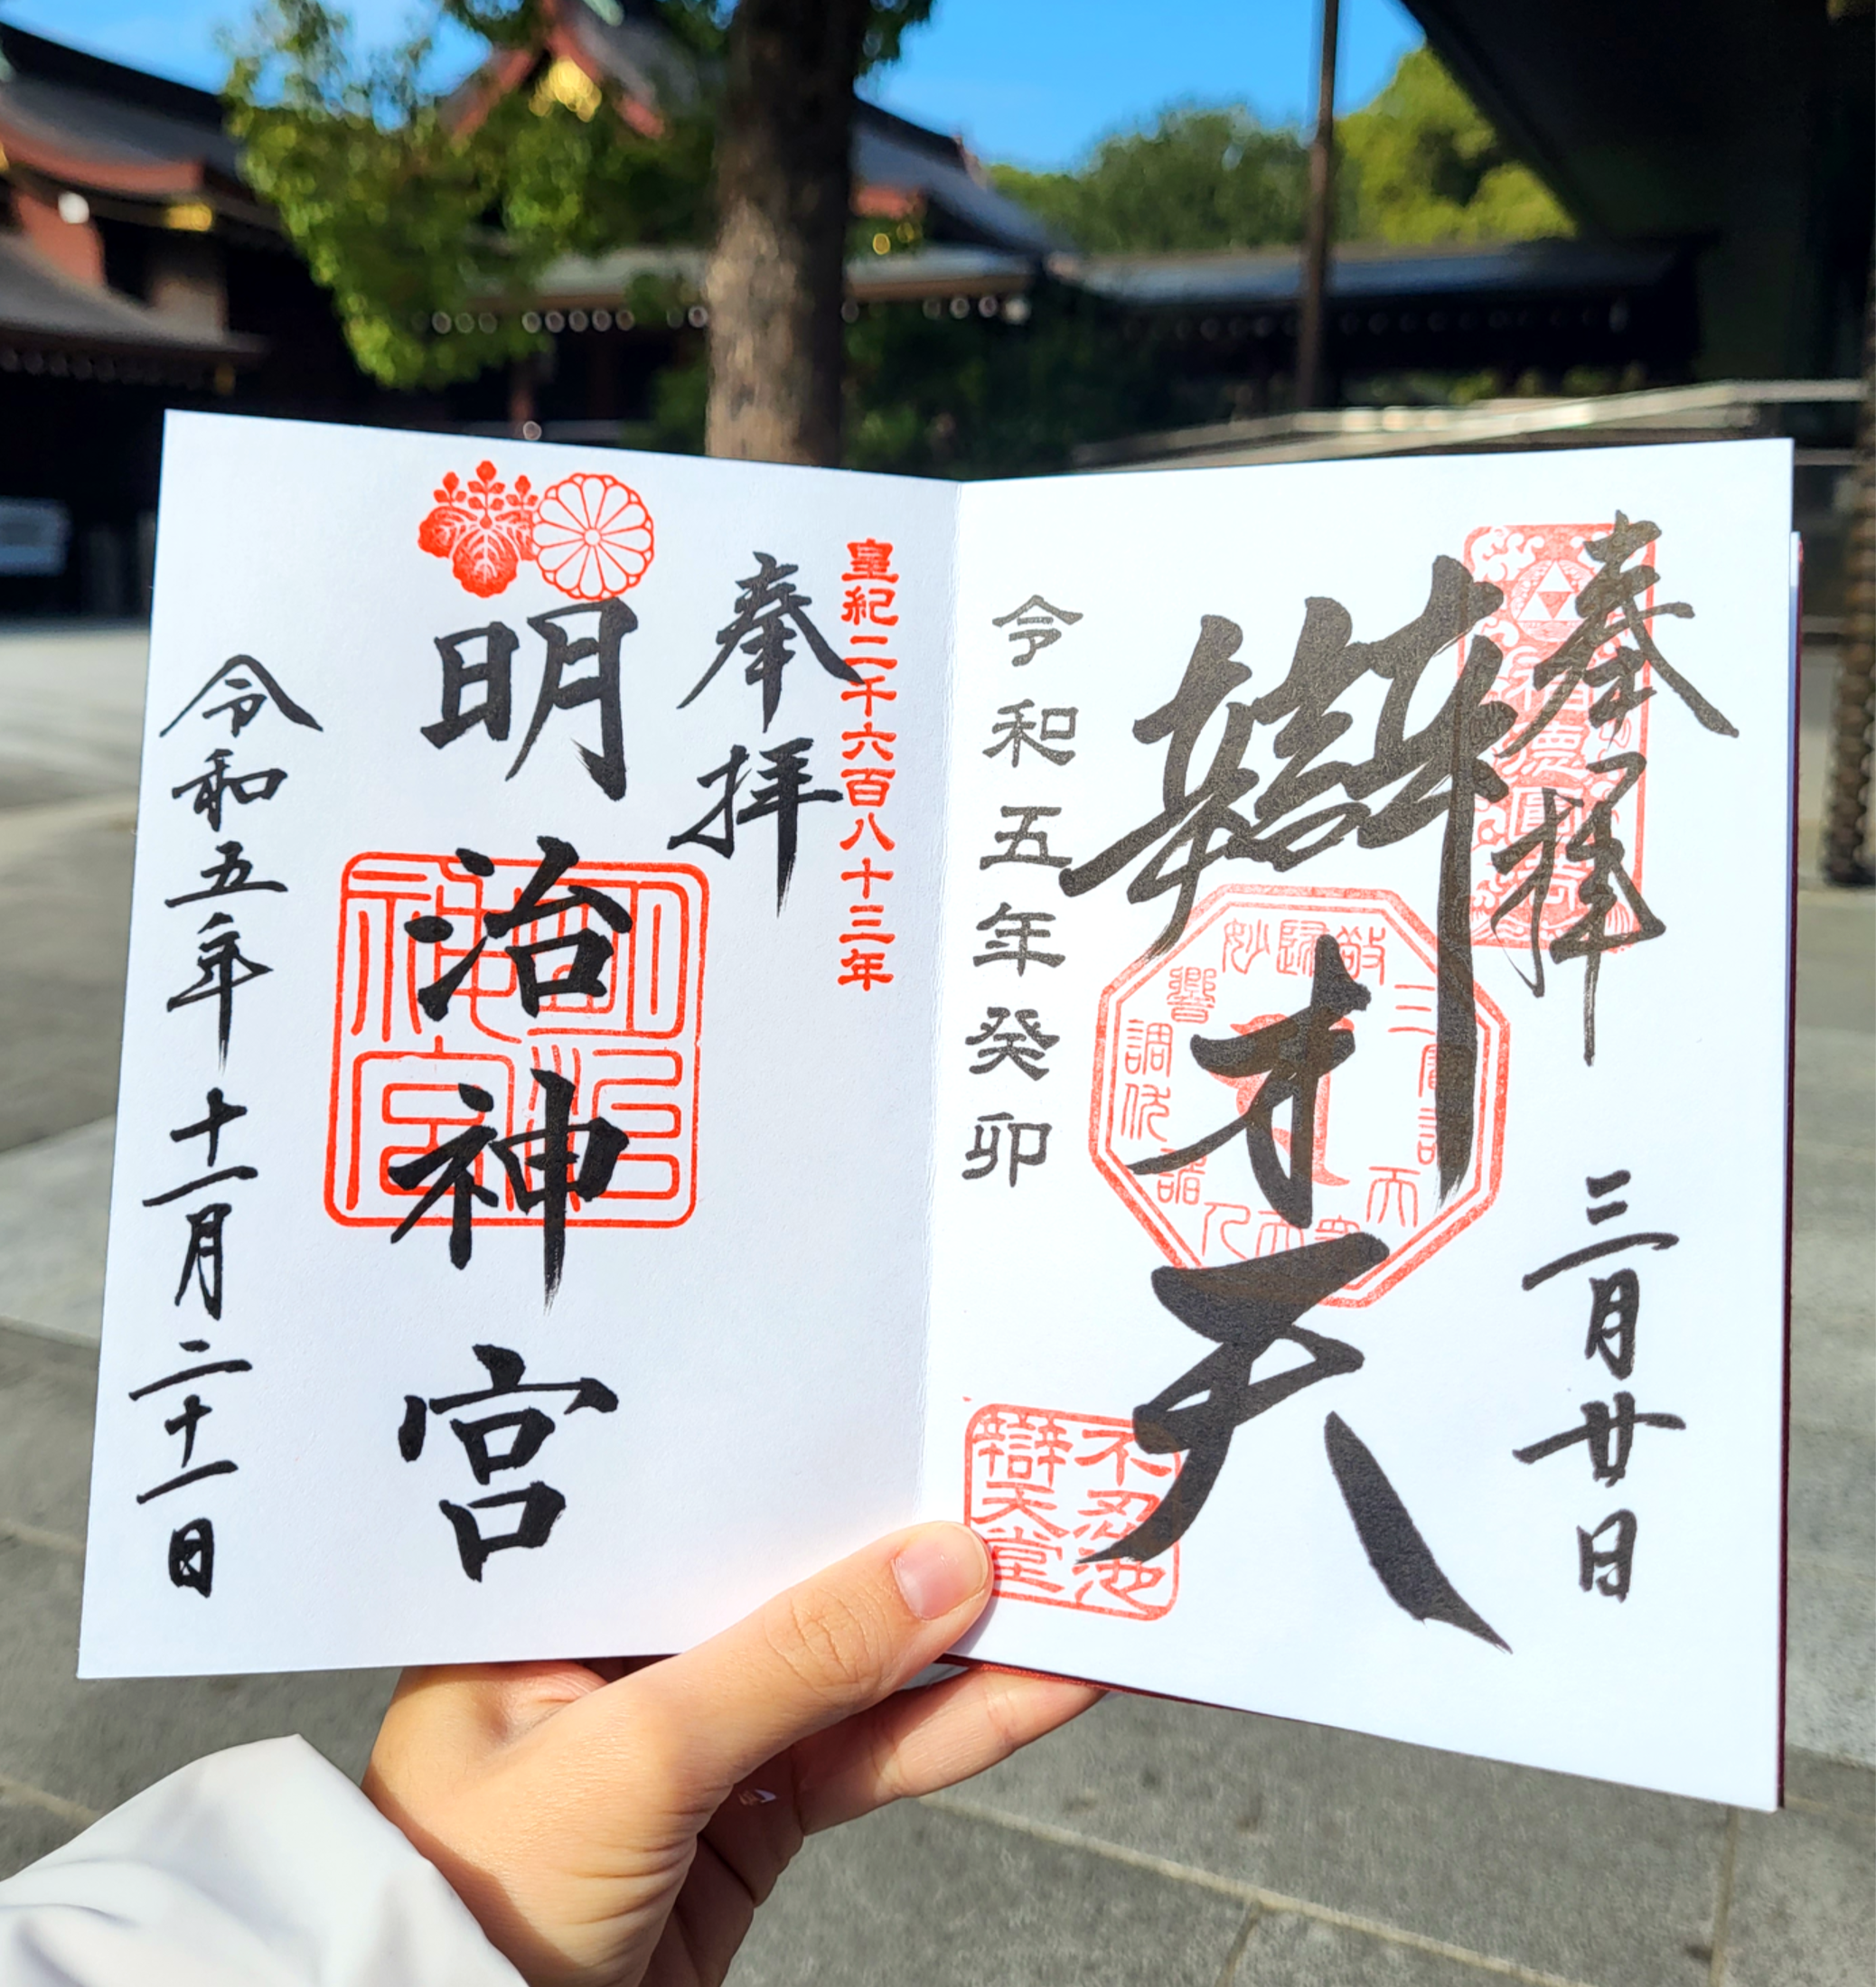 奉拝
三月廿日
辯才天
令和五年癸卯
不忍池
辯天堂
皇紀二千六百八十三年
奉拝
明治神宮
令和五年十一月二十一日